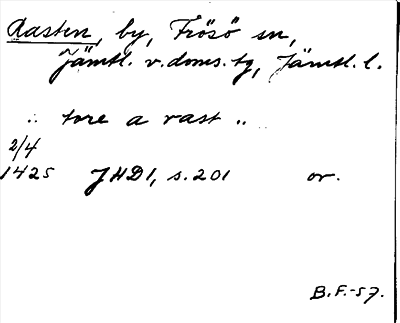 Rasten, by, Frösö sn,
Jämtl. v. doms. tg, Jämtl. l.
.. tore a rast ..
2/4
1425 JHD 1, s. 201 or.
B.F.-57.